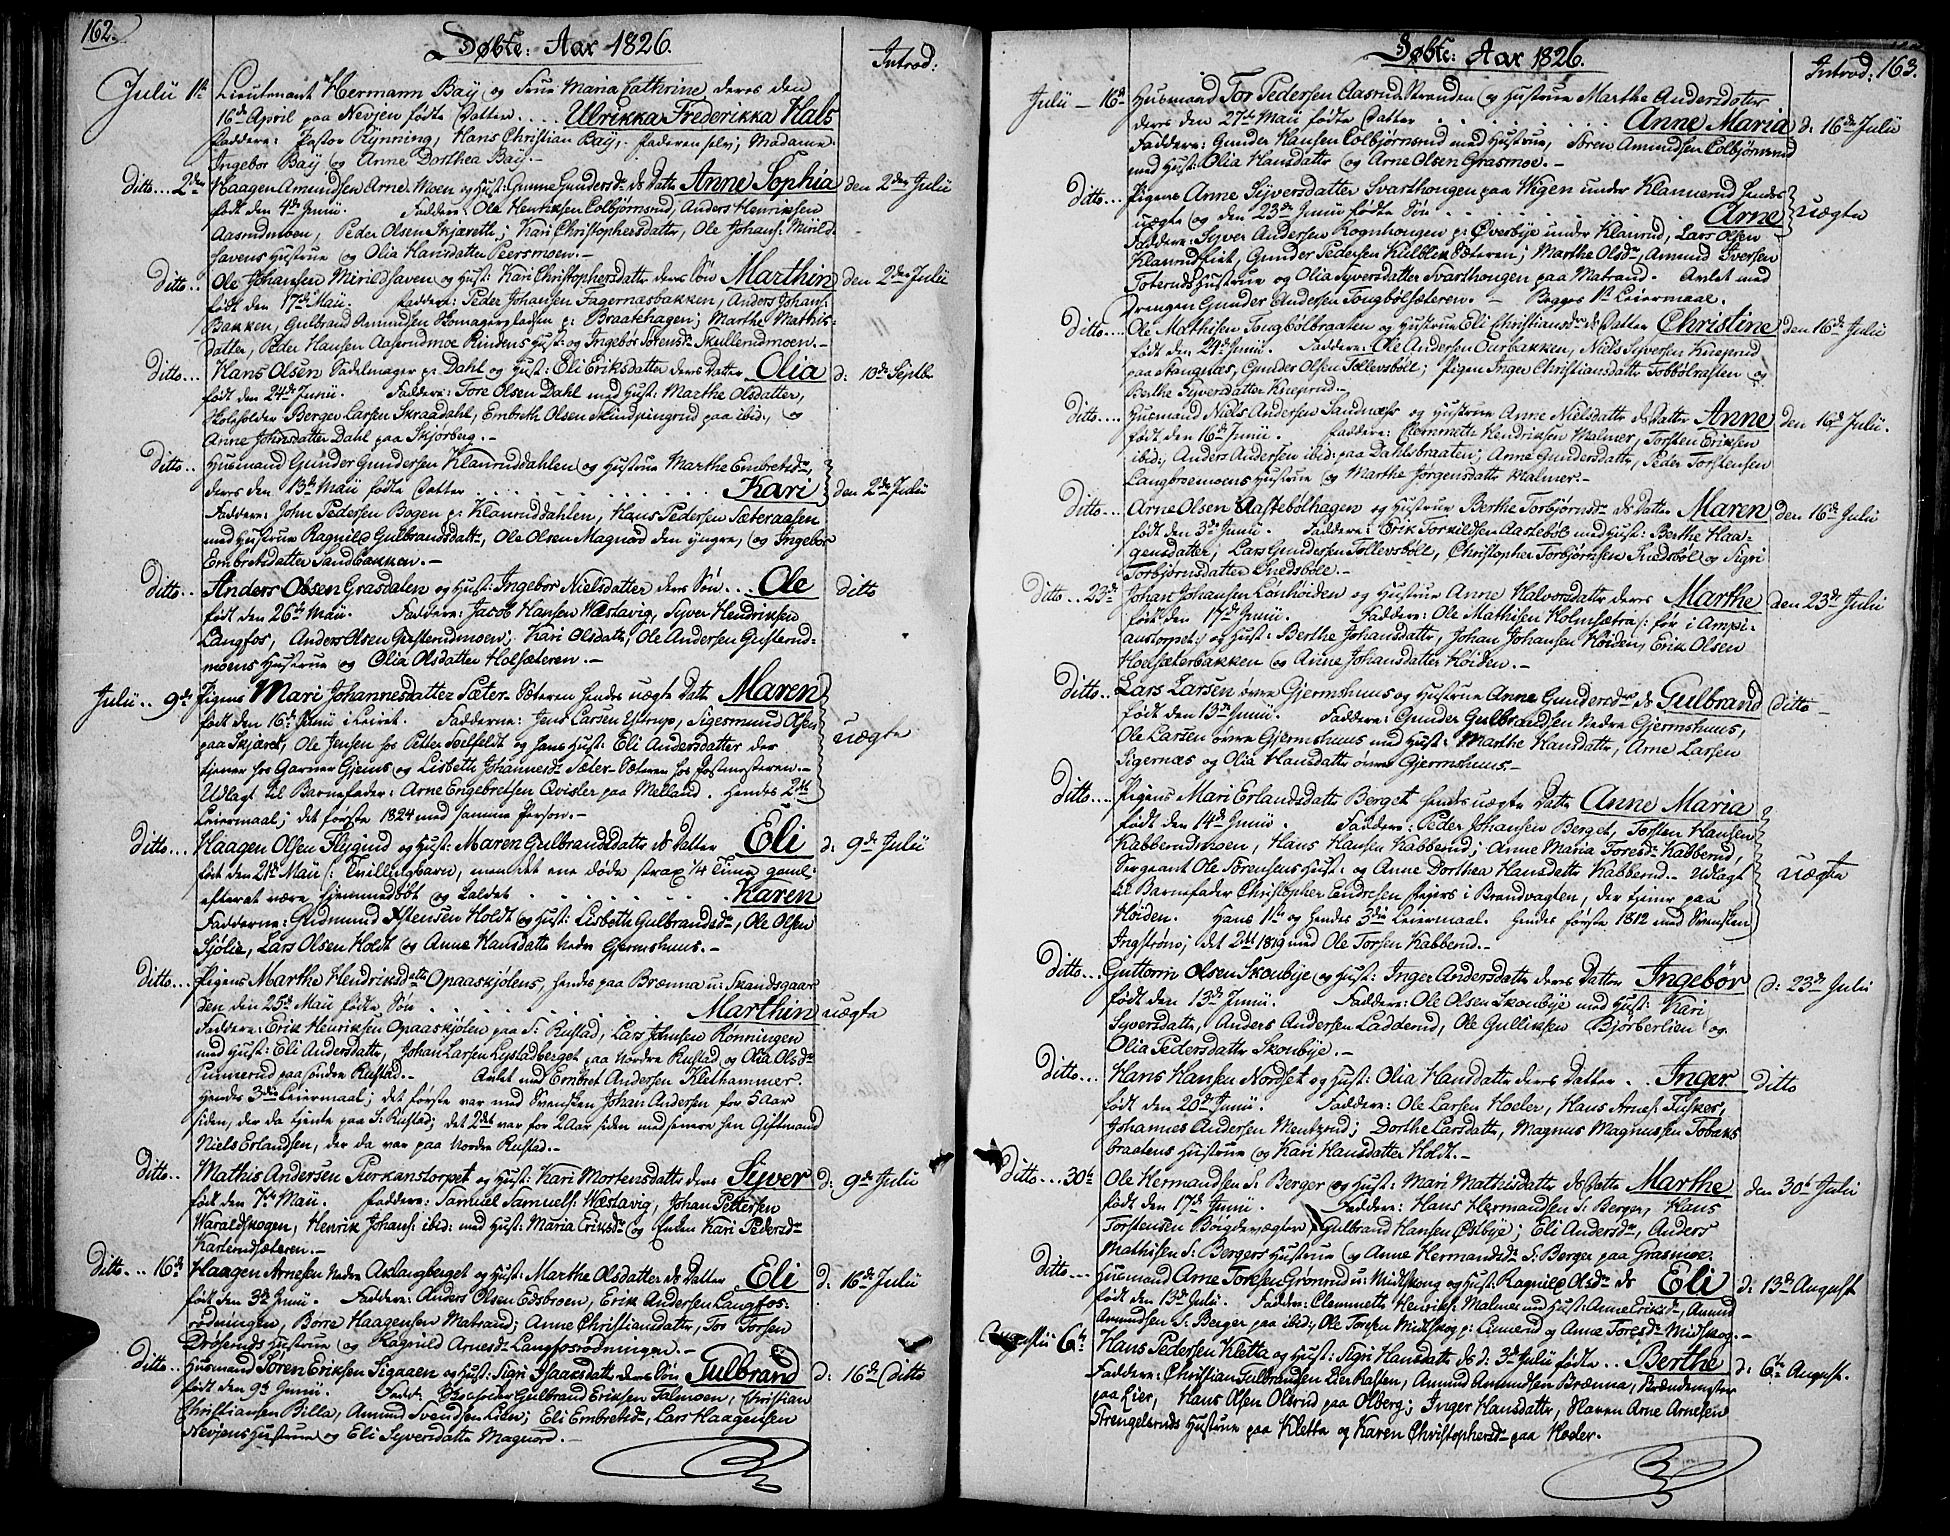 162.
Døbte: Aar 1826.
Introd:
Julii 1te Lieutenant Hermann Bay og Frue Maria Cathrine deres den
16de April paa Nevjen fødte Datter .... Ulrikka Frederikka Hals
Faddere: Pastor Rynning, Hans Christian Bay, Faderen selv; Madame
Ingebor Bay og Anne Dorthea Bay.-
ditto... 2den Haagen Amundsen Arne-Moen og Hust: Gunne Gundersdr ds Datr Anne Sophia den 2den Julii
født den 4de Junii. Faddere: Ole Henriksen Colbjørnsrud, Anders Henriksen
Aasrudmoen, Peder Olsen Skjæreth; Kari Christophersdatter, Ole Johans: Mirild-
havens Hustrue og Olia Hansdatter Peersmoen.-
ditto.. Ole Johansen Mirildhaven og Hust: Kari Christophersdattr deres Søn Marthin den 2den Julii
født den 17de Maii. Faddere: Peder Johansen Fagernæsbakken, Anders Johans:
Bakken, Gulbrand Amundsen Homagerpladsen p: Braatehagen; Marthe Mathis-
datter, Peder Hansen Aaserudmoe Rindens Hust: og Ingebør Sørensdr Skullerudmoen.-
ditto... Hans Olsen Sadelmager p: Dahl og Hust: Eli Eriksdatter deres Datter Olia d: 10de Septbr
født den 24de Junii. Faddere: Tore Olsen Dahl med Hust: Marthe Olsdatter,
Holsfolder Berger Larsen Skraadahl, Embreth Olsen Skindpingrud paa ibid:, og
Anne Johnsdatter Dahl paa Skjørberg.-
ditto.. Husmand Gunder Gundersen Klanruddahlen og Hustrue Marthe Embretsdr,
deres den 13de Maii fødte Datter ............ Kari den 2de Julii
Faddere: John Pedersen Bogen p: Klanruddahlen, Hans Pedersen Sæteraasen
med Hustrue Ragnild Gulbrandsdattr, Ole Olsen Magnord den yngre, og Ingebor
Embretsdatter Sandbakken.-
ditto.. Anders Olsen Grasdalen og Hust: Ingebor Nielsdatter deres Søn ... Ole ditto
født den 26de Maii. Faddere: Jacob Hansen Wæstavig, Syver Hendriksen
Langfos, Anders Olsen Gusterudmoen; Kari Olsdattr, Ole Andersen Gusterud-
moens Hustrue og Olia Olsdatter Holsæteren.-
Julii.. 9de Pigens Mari Johannesdatter Sæter-Sæteren hendes uægte Dattr Maren
født den 16de Junii i Leiret. Fadderne: Jens Larsen Ustrup, Sigesmund Olsen
paa Skjæret, Ole Jensen hos Petter Soelfeldt og hans Hust: Eli Andersdatter der uægte
tjener hos Garver Gjems og Lisbeth Johannesdr Sæter-Sæteren hos Postmesteren.-
Udlagt til Barnefader: Arne Engebretsen Qvisler paa Melland. Hendes 2det
Leiermaal; det første 1824 med samme Person.-
ditto... Haagen Olsen Flygind og Hust: Maren Gulbrandsdattr ds Datter Eli d: 9de Julii
født den 21de Maii (: Tvillingbarn, men det ene døde strax 1/4 Time gaml:
efterat være hjemmedøbt og kaldet ........ Karen
Fadderne: Gudmund Ostensen Holdt og Hust: Lisbeth Gulbrandsdr, Ole Olsen
Sjølie, Lars Olsen Holdt og Anne Hansdattr Nedre Gjermshuus.-
ditto... Pigens Marthe Hendriksdattr Opaaskjølens, hendes paa Brænna u: Skandsgaar-
den den 25de Maii fødte Søn ........ Marthin uægte
Faddere: Erik Henriksen Opaaskjølen paa S: Rustad, Lars Johnsen Rønningen
med Hust: Eli Andersdattr, Johan Larsen Lystadberget paa Nordre Rustad og Olia Olsdr
Sunnerud paa Søndre Rustad.- Avlet med Embret Andersen Klethammer.
Hendes 3die Leiermaal; det første var med Svensken Johan Andersen for 5 Aar
siden, der da tjente paa S: Rustad; det 2det var for 2 Aar siden med senere hen Giftmand
Niels Erlandsen, der da var paa Nordre Rustad.-
ditto.. Mathis Andersen Purkanstorpet og Hust: Kari Mortensdattr deres Syver d: 9de Julii
født den 7de Maii. Faddere: Samuel Samuels: Wæstavig, Johan Pettersen
Waraldskogen, Henrik Johans: ibid: med Hust: Maria Eriksdr og Enken Kari Pedersdr
Karterudsæteren.-
ditto.. 16de Haagen Arnesen Nedre Aklangberget og Hust: Marthe Olsdatter ds Datter Eli d: 16de Julii
født den 3de Junii. Faddere: Anders Olsen Edsbroen, Erik Andersen Langfos-
rødningen, Børre Haagensen Matrand; Anne Christiansdattr, Tor Torsen
Drøserud's Hustrue og Ragnild Arnesdr Langfosrødningen.-
ditto.. Husmand Søren Eriksen Sigaaen og Hust: Sigri Isaacsdattr deres Søn Gulbrand d: 16de ditto
født den 9de Junii. Fadd: Gulbrand Eriksen Falmoen, Christian
Christiansen Billa, Amund Svendsen Lien; Eli Embretsdr, Lars Haagensen
Nevjens Hustrue og Eli Syversdattr Magnord.-
Døbte: Aar 1826.
Introd: 163.
Julii - 16de Husmand Tor Pedersen Aasrud-Stranden og Hustrue Marthe Andersdatter
deres den 27de Maii fødte Datter ........ Anne Maria d: 16de Julii
Faddere: Gunder Hansen Colbjørnsrud med Hustrue, Søren Amundsen Colbjørnsrud
med Hust: Olia Hansdattr og Arne Olsen Grasmoe.-
ditto... Pigens Anne Syversdatter Svarthougen paa Wigen under Klannerud hendes
uægte og den 23de Junii fødte Søn ........ Arne uægte
Faddere: Syver Andersen Rognhougen p: Øverbye under Klanrud, Lars Olsen
Klanrudfiet, Gunder Pedersen Kulblik-Sæteren; Marthe Olsdr, Amund Iversen
Toteruds Hustrue og Olia Syversdatter Svarthougen paa Matrand. Avlet med
Drengen Gunder Andersen Tougbølsæteren.- Begges 1te Leiermaal.
ditto... Ole Mathisen Tougbølbraaten og Hustrue Eli Christiansdr ds Datter Christine den 16de Julii
født den 24de Junii. Faddere: Ole Andersen Aarbakken, Niels Syversen Kneprud
paa Stangnæs, Gunder Olsen Tollevsbøl; Pigen Inger Christiansdattr Tobbølrasten og
Berthe Syversdatter Kneprud.-
ditto... Husmand Niels Andersen Sandnæss og Hustrue Anne Nielsdattr ds Datter Anne den 16de Julii.
født den 16de Junii. Faddere: Clemmeth Hendriksen Malmer, Torsten Eriksen
ibid:, Anders Andersen ibid: paa Dahlsbraaten; Anne Gundersdattr, Peder Torstensen
Langbroemoens Hustrue og Marthe Jørgensdattr Malmer.-
ditto... Arne Olsen Aastebølhagen og Hustrue Berthe Torbjørnsdr ds Dattr Maren den 16de Julii
født den 3de Junii. Faddere: Erik Torkildsen Aastebøl med Hust: Berthe Haa-
gensdatter, Lars Gundersen Tollevsbøl, Christopher Torbjørnsen Snedsbøl og Sigri
Torbjørnsdatter Snedsbøl.-
ditto.. 23de Johan Johansen Lønhøiden og Hustrue Anne Halvorsdattr deres Marthe den 23de Julii
født den 17de Junii. Faddere: Ole Mathisen Holmsætra (: før i Ampi-
anstorpet:) og Hust: Berthe Johansdattr, Johan Johansen Høiden, Erik Olsen
Hoelsæterbakken og Anne Johansdattr Høiden.-
ditto.. Lars Larsen øvre Gjermshuus og Hustrue Anne Gundersdr ds Gulbrand ditto-
født den 13de Junii. Faddere: Gunder Gulbrandsen Nedre Gjermshuus,
Ole Larsen øvre Gjermshuus med Hust: Marthe Hansdattr, Arne Larsen
Sigernæs og Olia Hansdattr øvre Gjermshuus.-
ditto.... Pigens Mari Erlandsdattr Berget hendes uægte Dattr Anne Maria
født den 14de Junii. Faddere: Peder Johansen Berget, Torsten Hansen
Kabberudmoen, Hans Hansen Kabberud; Anne Maria Toresdr Kabberud,
Sergeant Ole Sørensens Hust: og Anne Dorthea Hansdattr Kabberud.- Udlagt uægte
til Barnefader Christopher Endresen Peiers i Brandvagten, der tjener paa
Høiden. Hans 1te og hendes 3die Leiermaal. Hendes første 1812 med Svensken
Ingstrøm; det 2det 1819 med Ole Torsen Kabberud.-
ditto... Guttorm Olsen Skoubye og Hust: Inger Andersdattr deres Datter Ingebør d: 23de Julii
født den 13de Junii. Faddere: Ole Olsen Skoubye med Hust: Kari
Syversdattr, Anders Andersen Ladderud, Ole Gulliksen Bjørberlien og
Olia Pedersdattr Skoubye.-
ditto... Hans Hansen Nordset og Hust: Olia Hansdattr deres Datter .. Inger ditto
født den 20de Junii. Faddere: Ole Larsen Hoeler, Hans Arnes: Tusker,
Johannes Andersen Mentzrud; Dorthe Larsdattr, Magnus Magnussen Tobaks-
braatens Hustrue og Kari Hansdattr Holdt.-
ditto... 30te Ole Hermandsen S: Berger og Hust: Mari Mathisdattr ds Dattr Marthe den 30te Julii
født den 17de Junii. Faddere: Hans Hermandsen S: Berger, Hans
Torstensen Bøigdevægter, Gulbrand Hansen Østbye; Eli Andersdr, Anders
Mathisen S: Bergers Hustrue og Anne Hermandsdr S: Berger paa Grasmoe.
ditto... Husmand Arne Toresen Grønrud u: Midskoug og Hust: Ragnild Olsdr ds Eli d: 13de August
født den 13de Julii. Faddere: Clemmeth Henriks: Malmer med Hust: Anne Eriksdr, Amund
Amundsen S: Berger paa ibid:, Ole Toresen Midtskog p: Linnerud og Anne Toresdr Midskog.-
Augustii 6te Hans Pedersen Kletta og Hust: Sigri Hansdattr ds d: 3de Julii fødte .. Berthe d: 6te August.
Faddere: Christian Gulbrandsen Lier-Rasten, Amund Amundsen Brænna, Brændemester
paa Lier, Hans Olsen Olsrud paa Olberg; Inger Hansdattr, Slaven Arne Arnesen
Strengelsruds Hustrue paa Kletta og Karen Christophersdr paa Hoeler.